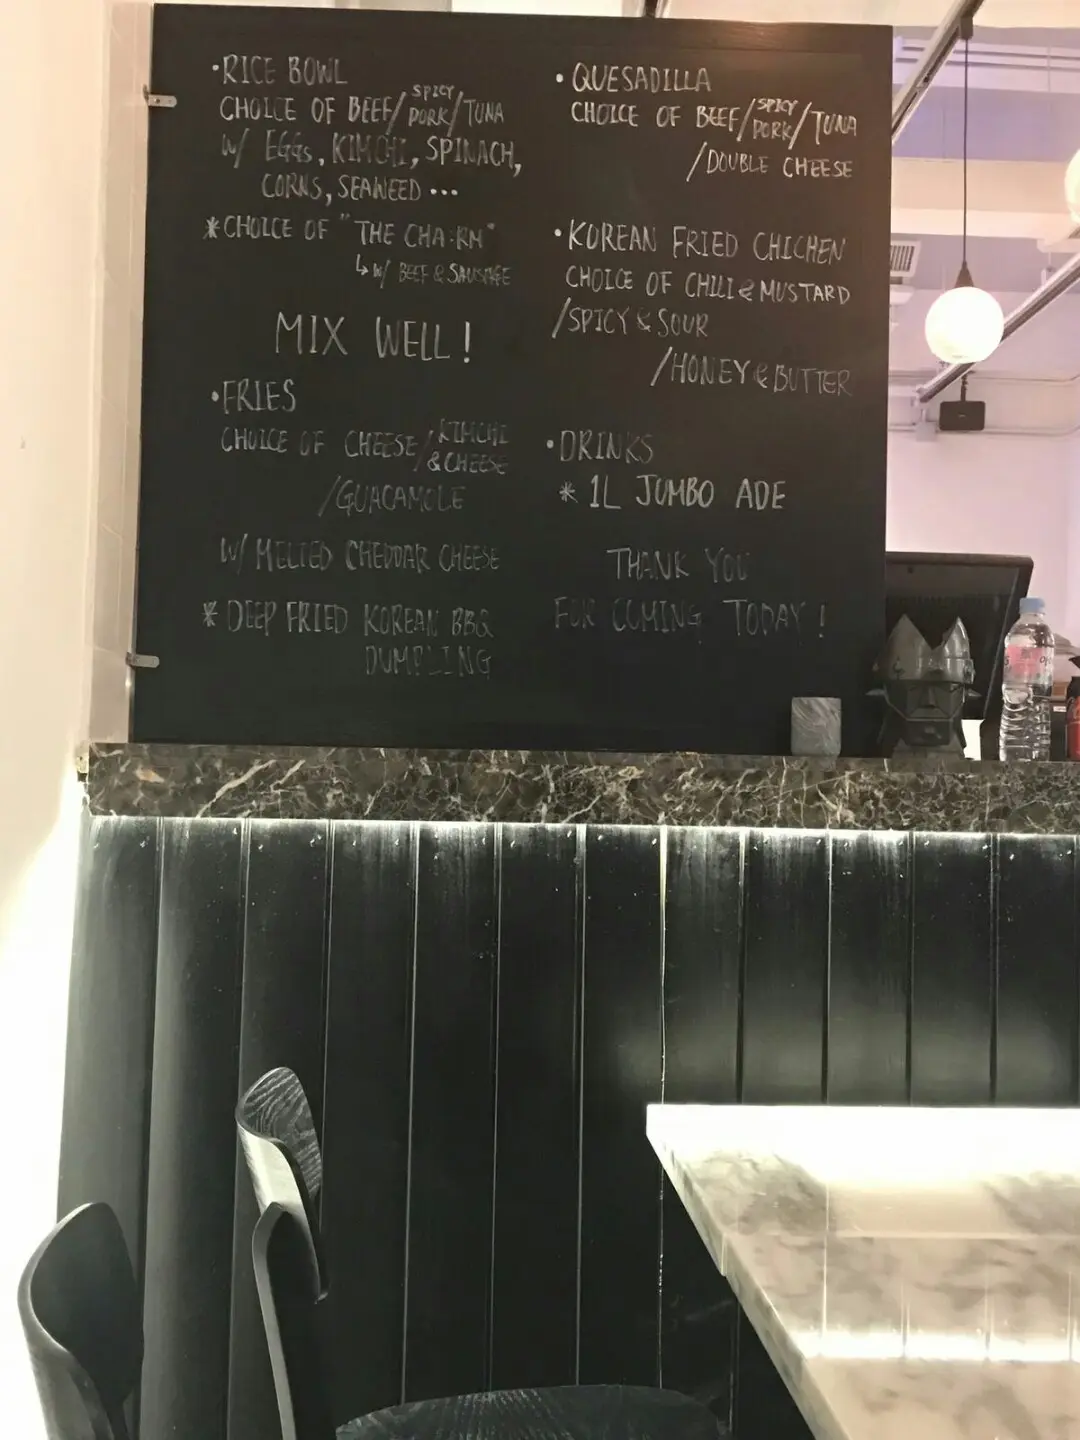 ·RICE BOWL
CHOICE OF BEEF/SPICY PORK/TUNA
W/ EGGs, KIMCHI, SPINACH,
CORNS, SEAWEED ...
*CHOICE OF "THE CHA:RM"
↳ W/ BEEF & SAUSAGE
MIX WELL!
·FRIES
CHOICE OF CHEESE/KIMCHI & CHEESE
/GUACAMOLE
W/ MELTED CHEDDAR CHEESE
* DEEP FRIED KOREAN BBQ
DUMPLING
·QUESADILLA
CHOICE OF BEEF/SPICY PORK/TUNA
/DOUBLE CHEESE
·KOREAN FRIED CHICHEN
CHOICE OF CHILI & MUSTARD
/SPICY & SOUR
/HONEY & BUTTER
·DRINKS
* 1L JUMBO ADE
THANK YOU
FOR COMING TODAY!